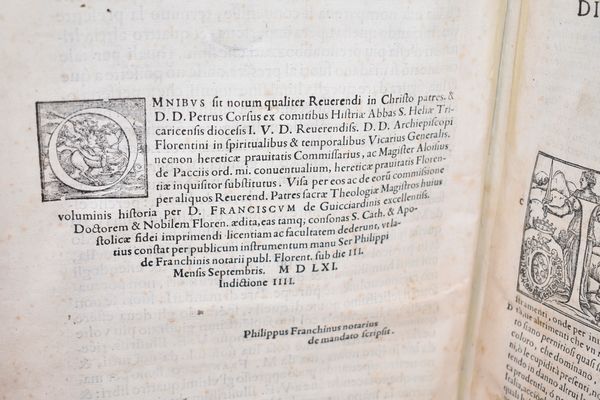 OMNIBVS sit notum qualiter Reuerendi in Christo patres. &
D. D. Petrus Corsus ex comitibus Histriæ Abbas S. Heliæ Tri-
caricensis diocesis I. V. D. Reuerendiss. D. D. Archiepiscopi
Florentini in spiritualibus & temporalibus Vicarius Generalis.
necnon hereticæ prauitatis Commissarius, ac Magister Aloisius
de Pacciis ord. mi. conuentualium, hereticæ prauitatis Floren-
tiæ inquisitor substitutus. Visa per eos ac de eorū commissione
per aliquos Reuerend. Patres sacræ Theologiæ Magistros huius
voluminis historia per D. FRANCISCVM de Guicciardinis excellentiss.
Doctorem & Nobilem Floren. ædita, eas tamq; consonas S. Cath. & Apo-
stolicæ fidei imprimendi licentiam ac facultatem dederunt, vt la-
tius constat per publicum instrumentum manu Ser Philippi
de Franchinis notarii publ. Florent. sub die III.
Mensis Septembris. M D LXI.
Indictione IIII.
Philippus Franchinus notarius
de mandato scripsit.
DI
C
D
stramenti, onde per in
to sano, perniciosi quasi s
coloro, che dominano,
le cupidità presenti, no
tendo in danno altrui l
ca prudentia, ò